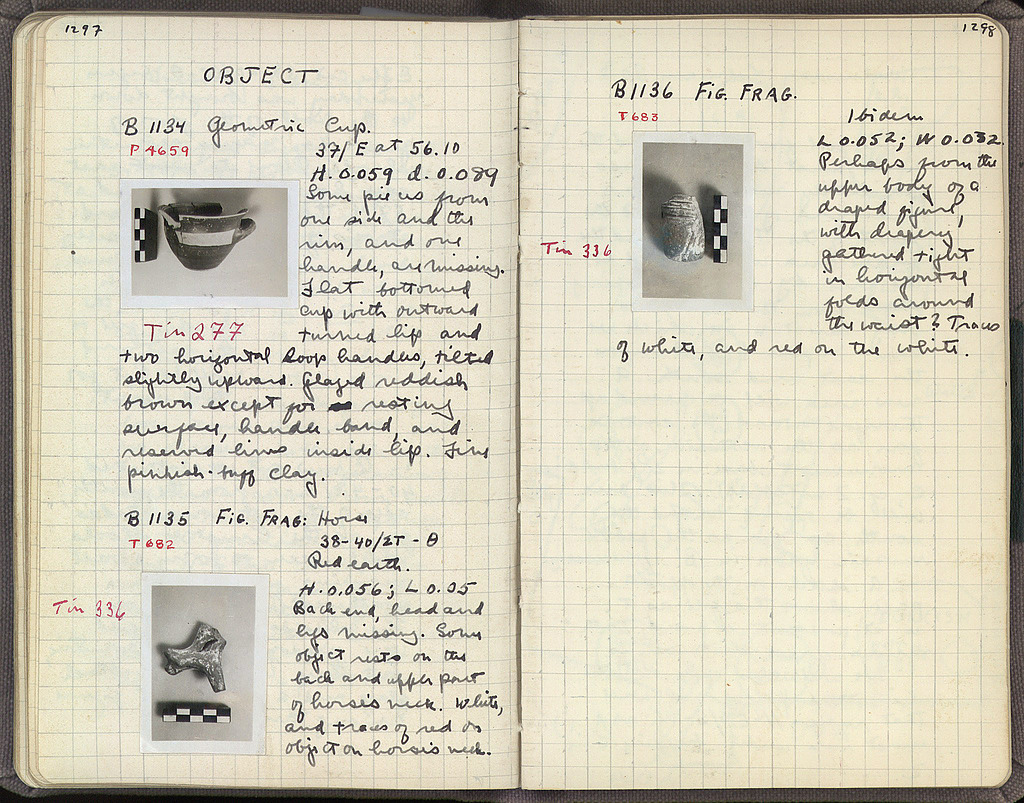 1297
OBJECT
B 1134 Geometric Cup.
P 4659
37/E at 56.10
H. 0.059 d. 0.089
Some pieces from
one side and the
rim, and one
handle, are missing.
Flat bottomed
cup with outward
Tin 277
turned lip and
two horizontal loop handles, tilted
slightly upward. Glazed reddish
brown except for resting
surface, handle band, and
reserved lines inside lip. Fine
pinkish-buff clay.
B 1135 Fig. Frag: Horse
T 682
38-40/ΣΤ - Θ
Red earth.
Tin 336
H. 0.056; L 0.05
Back end, head and
legs missing. Some
object rests on the
back and upper part
of horse's neck. White,
and traces of red on
object on horse's neck.
1298
B1136 Fig. Frag.
T 683
Ibidem
L 0.052; W 0.032.
Perhaps from the
upper body of a
draped figure,
with drapery
Tin 336
gathered tight
in horizontal
folds around
the waist? Traces
of white, and red on the white.